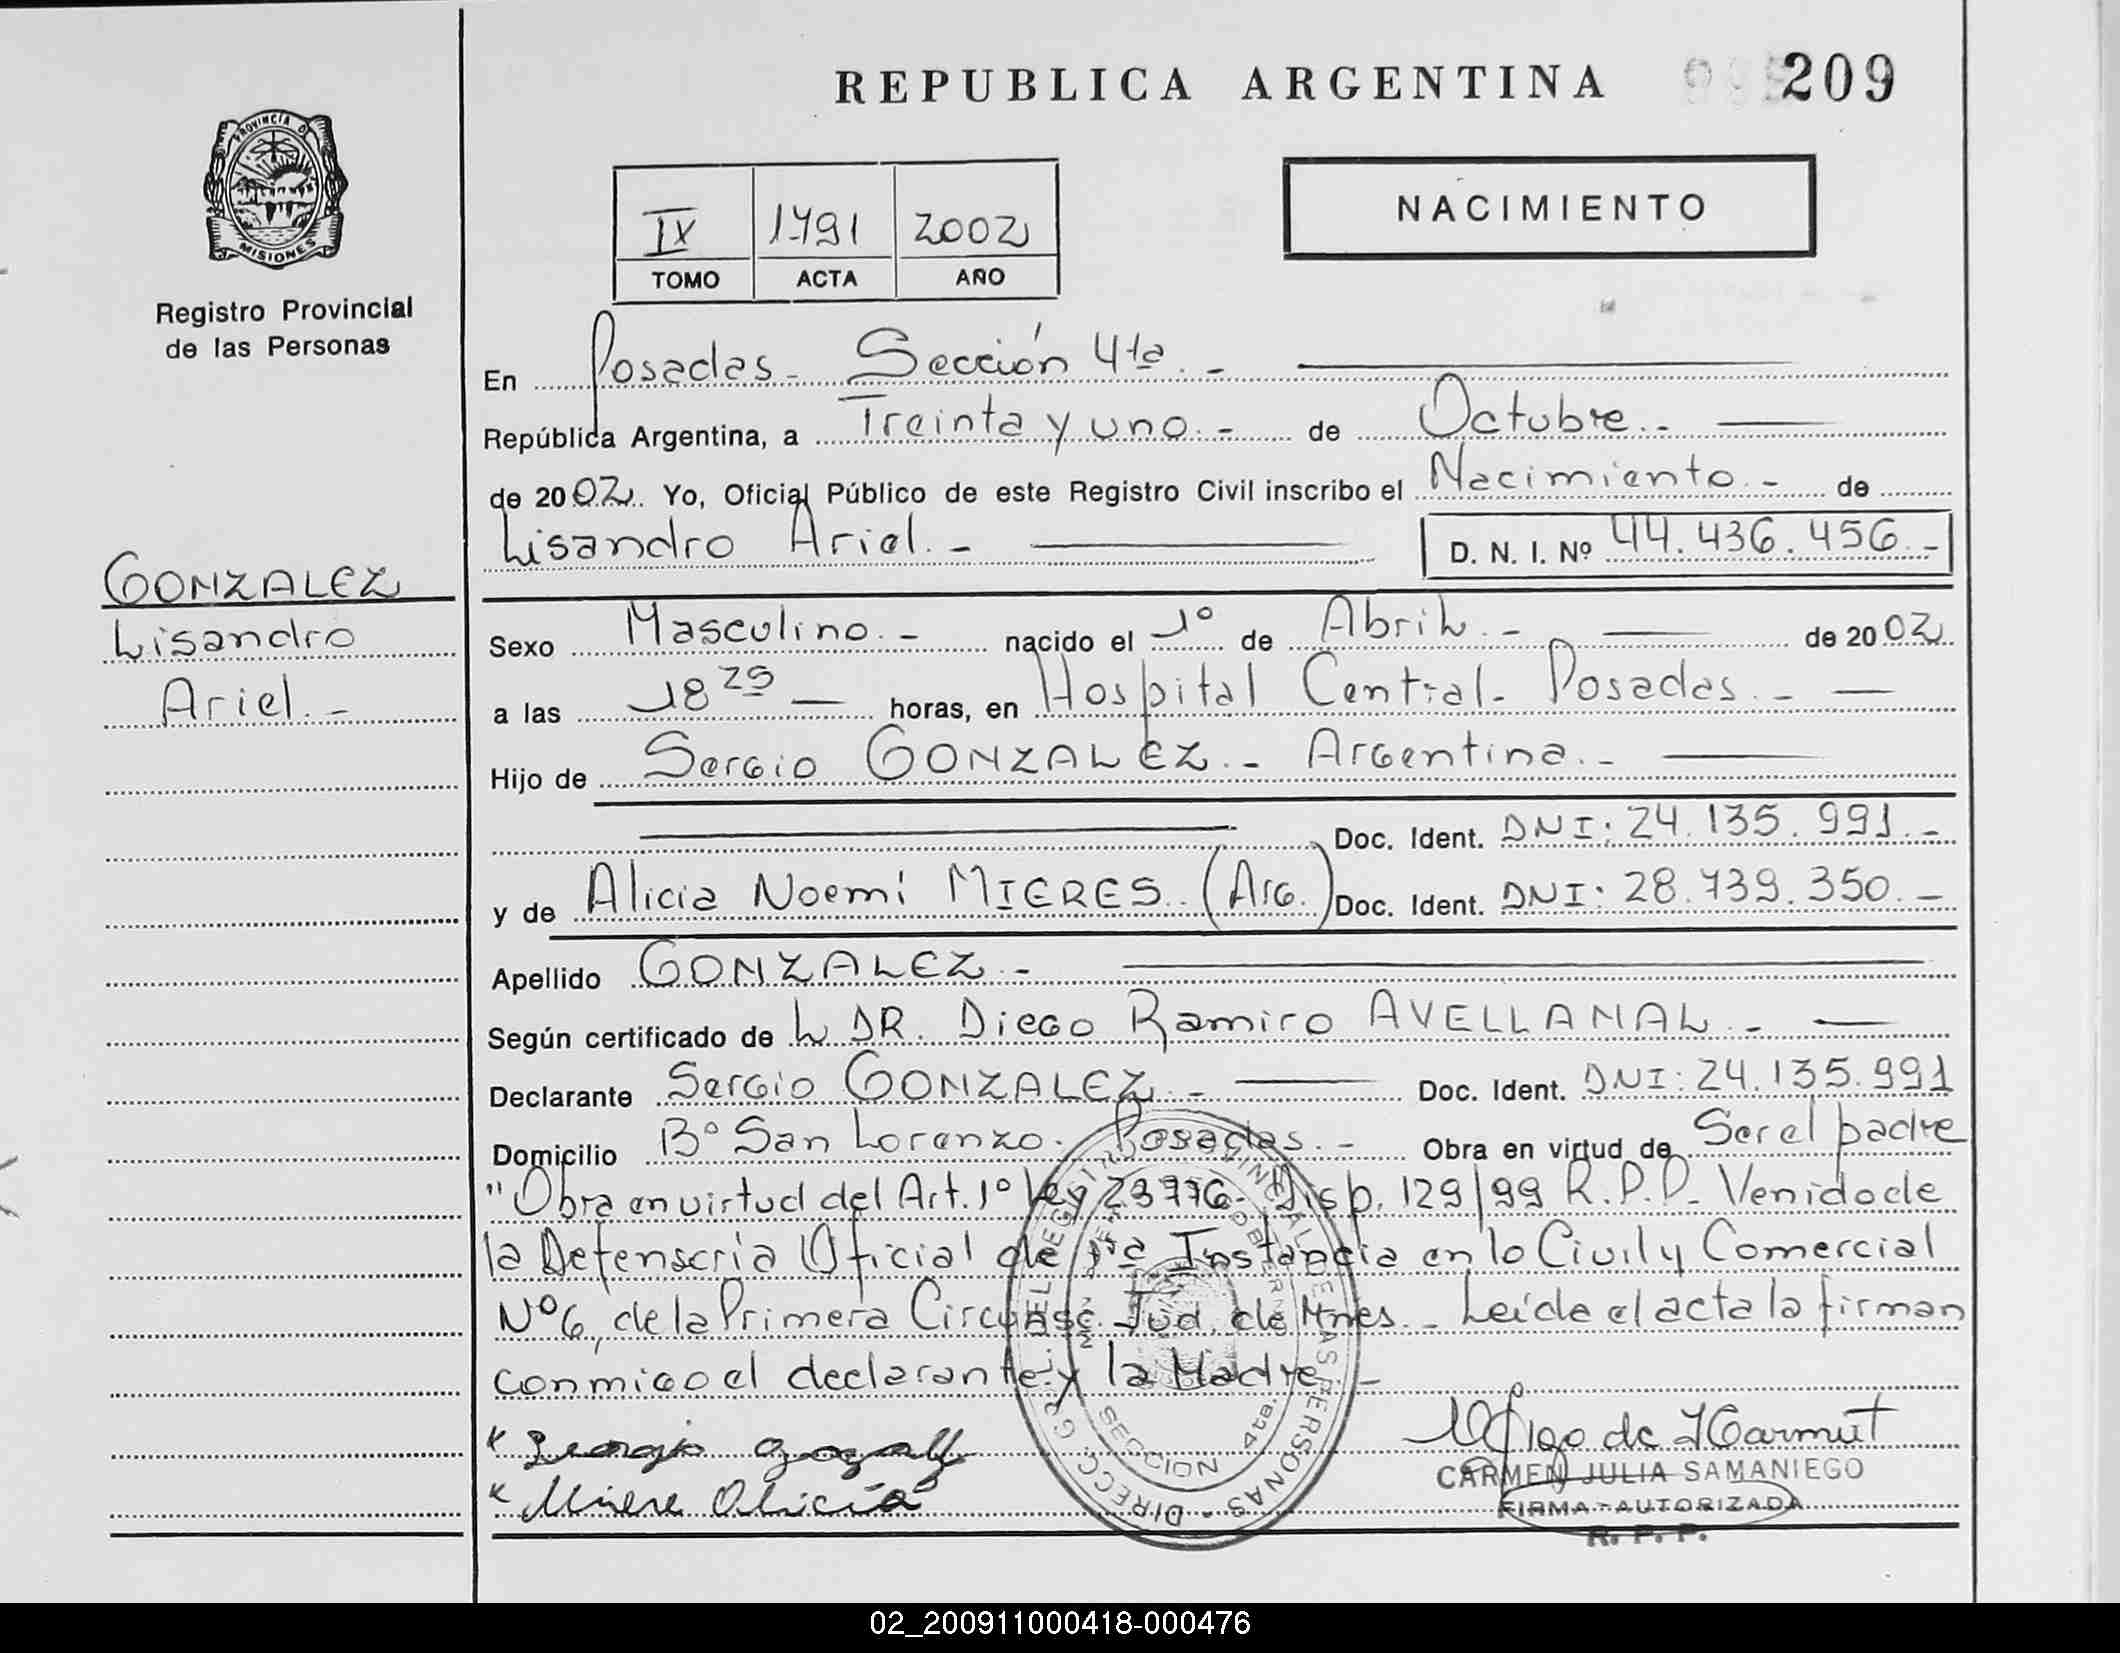 REPUBLICA ARGENTINA 209
PROVINCIA DE MISIONES
Registro Provincial
de las Personas
NACIMIENTO
IX 1791 2002
TOMO ACTA AÑO
En Posadas - Sección 4ta. -
República Argentina, a Treinta y uno. - de Octubre. -
de 2002. Yo, Oficial Público de este Registro Civil inscribo el Nacimiento. - de
Lisandro Ariel. - D. N. I. Nº 44.436.456. -
GONZALEZ
Lisandro
Ariel. -
Sexo Masculino. - nacido el 1º de Abril. - de 2002.
a las 18 25 horas, en Hospital Central - Posadas. -
Hijo de Sergio GONZALEZ. - Argentina. -
Doc. Ident. DNI: 24.135.991. -
y de Alicia Noemí MIERES. (Arg.) Doc. Ident. DNI: 28.739.350. -
Apellido GONZALEZ. -
Según certificado de L DR. Diego Ramiro AVELLANAL. -
Declarante Sergio GONZALEZ. - Doc. Ident. DNI: 24.135.991
Domicilio Bº San Lorenzo. Posadas. - Obra en virtud de Ser el padre
"Obra en virtud del Art. 1º Ley 23776 - Disp. 129/99 R.P.P. Venido de
la Defensoria Oficial de 1ra Instancia en lo Civil y Comercial
Nº 6, de la Primera Circunsc. Jud. de Mnes. - Leída el acta la firman
conmigo el declarante y la Madre. -
Miere Alicia
CARMEN JULIA SAMANIEGO
FIRMA AUTORIZADA
R. P. P.
SECCION 4ta.
02_200911000418-000476